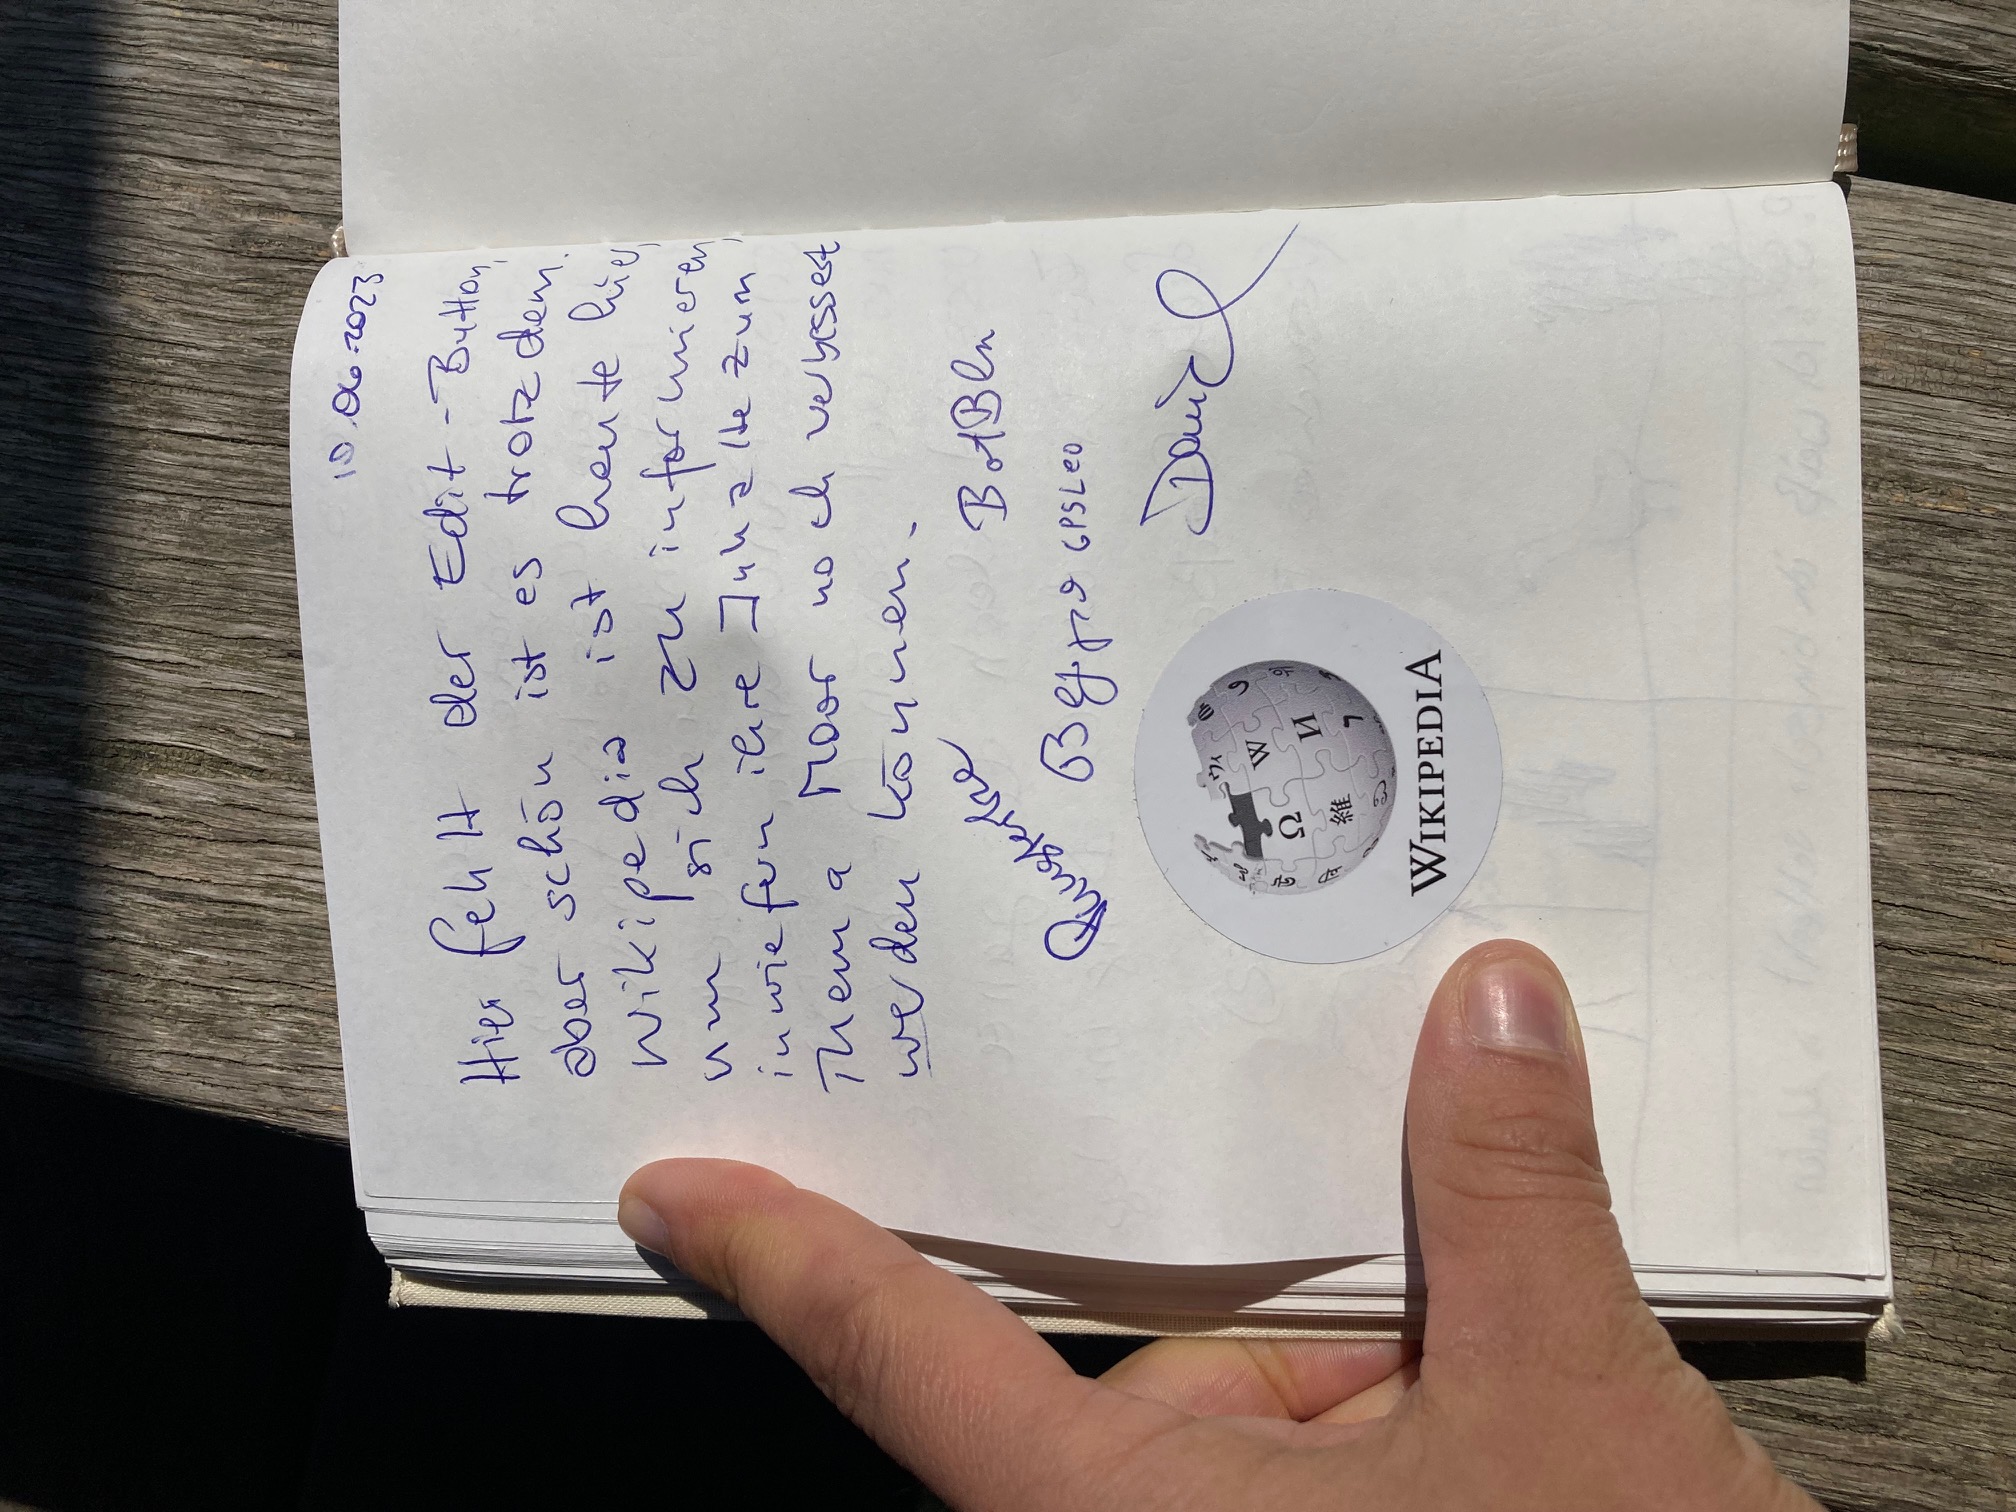 10.06.2023
Hier fehlt der Edit-Button,
aber schön ist es trotzdem.
Wikipedia ist heute hier,
um sich zu informieren,
inwiefern ihre Inhalte zum
Thema Moor noch verbessert
werden können.
BotBln
GPSLeo
David
Ω W И 7 維
WIKIPEDIA